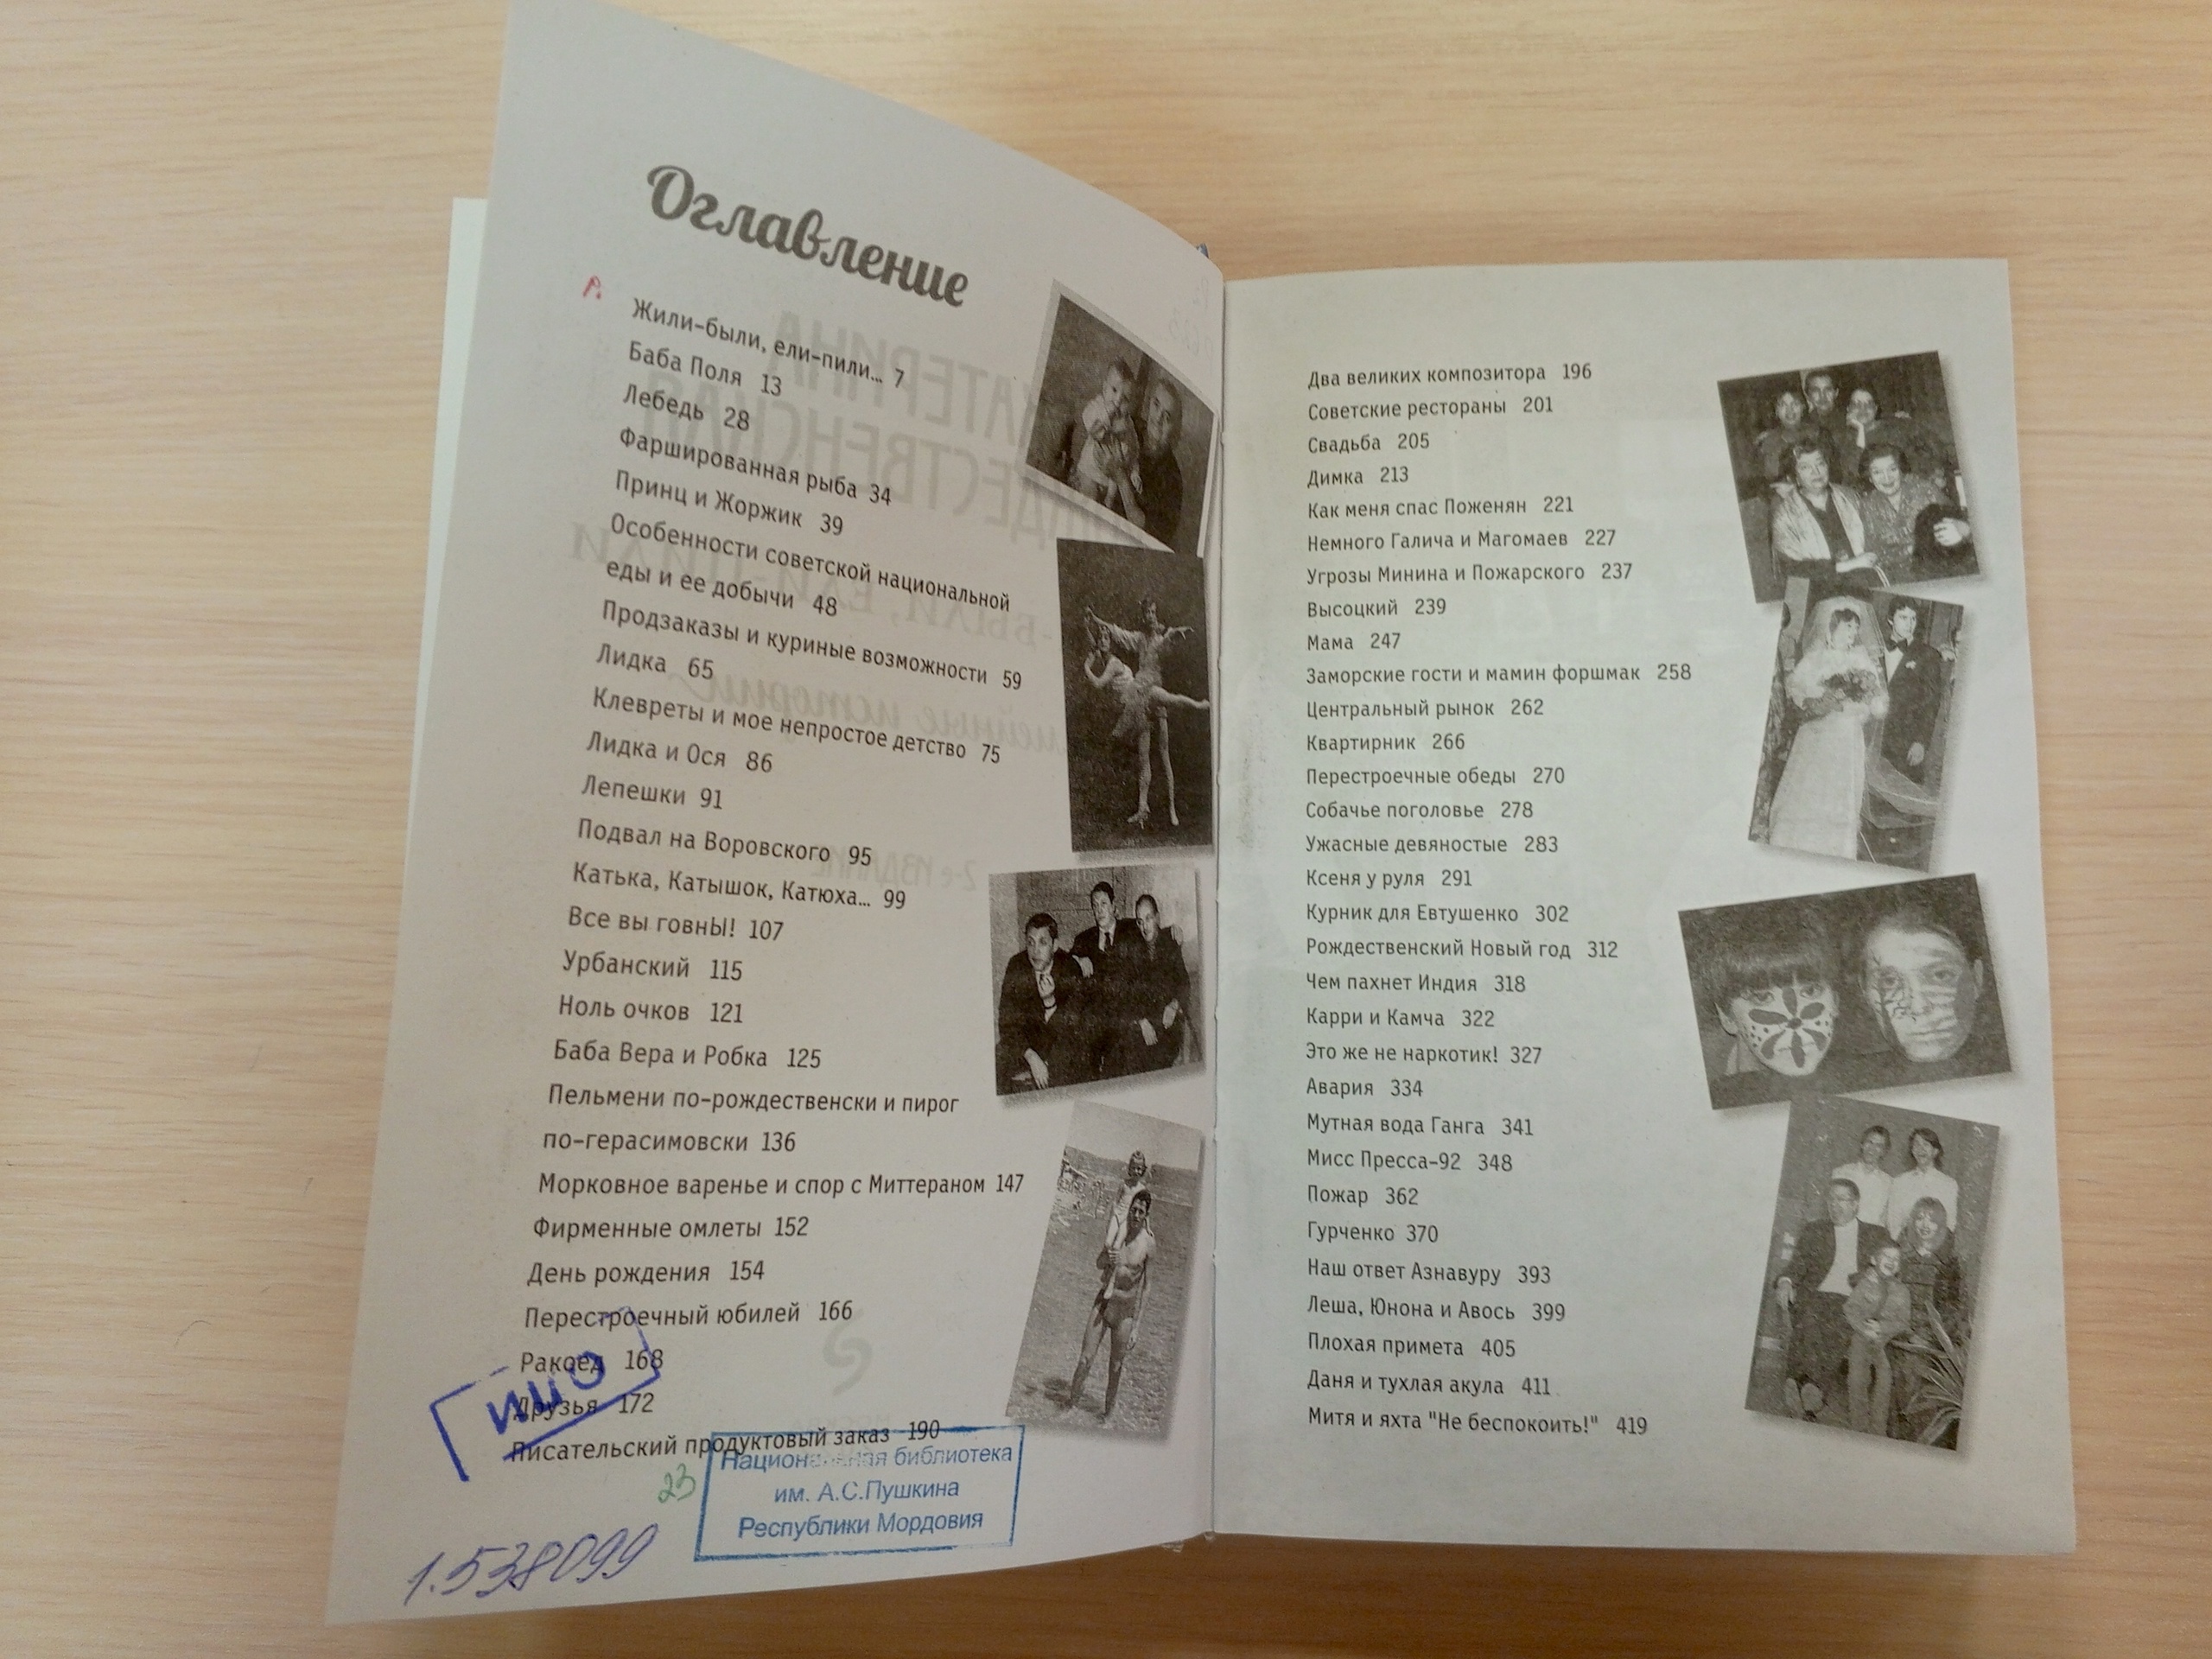 Оглавление
Жили-были, ели-пили... 7
Баба Поля 13
Лебедь 28
Фаршированная рыба 34
Принц и Жоржик 39
Особенности советской национальной
еды и ее добычи 48
Продзаказы и куриные возможности 59
Лидка 65
Клевреты и мое непростое детство 75
Лидка и Ося 86
Лепешки 91
Подвал на Воровского 95
Катька, Катышок, Катюха... 99
Все вы говнЫ! 107
Урбанский 115
Ноль очков 121
Баба Вера и Робка 125
Пельмени по-рождественски и пирог
по-герасимовски 136
Морковное варенье и спор с Миттераном 147
Фирменные омлеты 152
День рождения 154
Перестроечный юбилей 166
Ракоед 168
Друзья 172
Писательский продуктовый заказ 190
23
Национальная библиотека
им. А.С.Пушкина
Республики Мордовия
1.538099
Два великих композитора 196
Советские рестораны 201
Свадьба 205
Димка 213
Как меня спас Поженян 221
Немного Галича и Магомаев 227
Угрозы Минина и Пожарского 237
Высоцкий 239
Мама 247
Заморские гости и мамин форшмак 258
Центральный рынок 262
Квартирник 266
Перестроечные обеды 270
Собачье поголовье 278
Ужасные девяностые 283
Ксеня у руля 291
Курник для Евтушенко 302
Рождественский Новый год 312
Чем пахнет Индия 318
Карри и Камча 322
Это же не наркотик! 327
Авария 334
Мутная вода Ганга 341
Мисс Пресса-92 348
Пожар 362
Гурченко 370
Наш ответ Азнавуру 393
Леша, Юнона и Авось 399
Плохая примета 405
Даня и тухлая акула 411
Митя и яхта "Не беспокоить!" 419